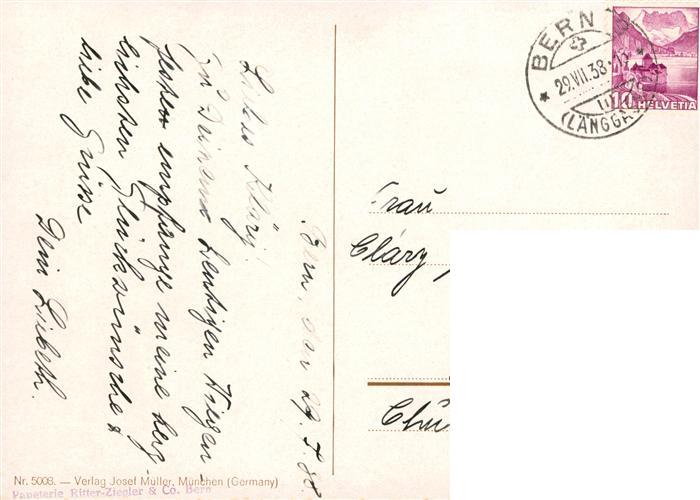 Bern, den 29.7.38.
Liebes Kläry!
Zu Deinem heutigen Wiegen-
feste empfange meine herz-
lichsten Glückwünsche &
liebe Grüsse
Dein Lisbeth.
BERN
29.VII.38
(LÄNGGA
10 HELVETIA
Frau
Cläry
Chu
Nr. 5008. — Verlag Josef Müller, München (Germany)
Papeterie Ritter-Ziegler & Co. Bern